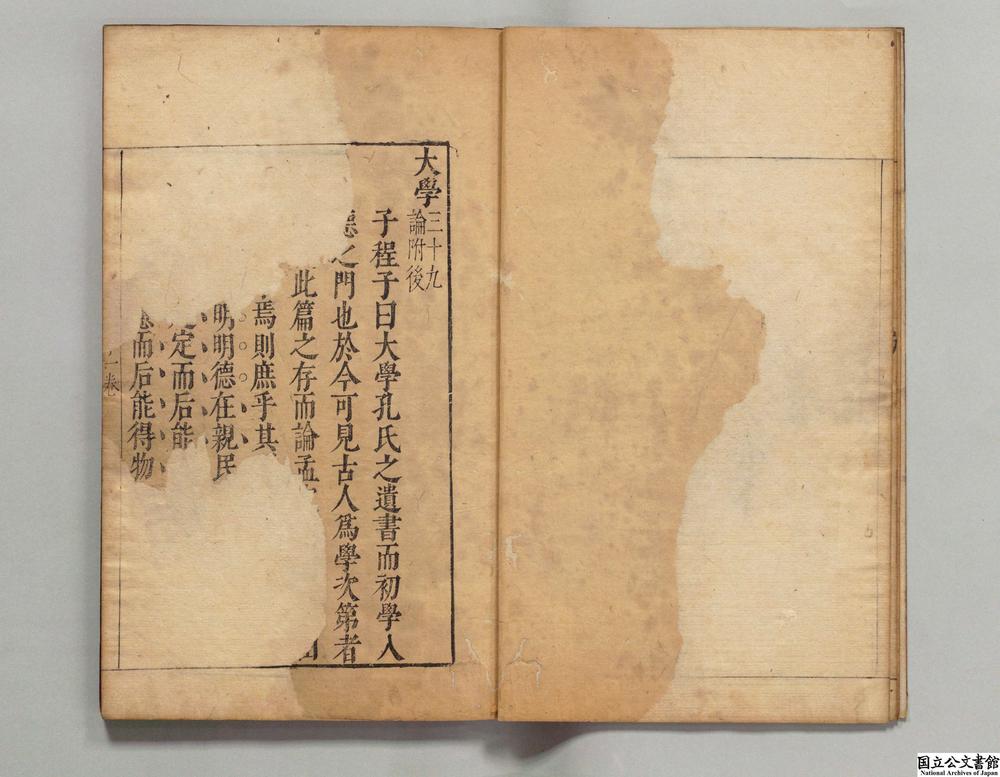 大學
三十九
論附後
子程子曰大學孔氏之遺書而初學入
之門也於今可見古人爲學次第者
此篇之存而論孟
焉則庶乎其
明明德在親民
定而后能
而后能得物
卷
国立公文書館
National Archives of Japan